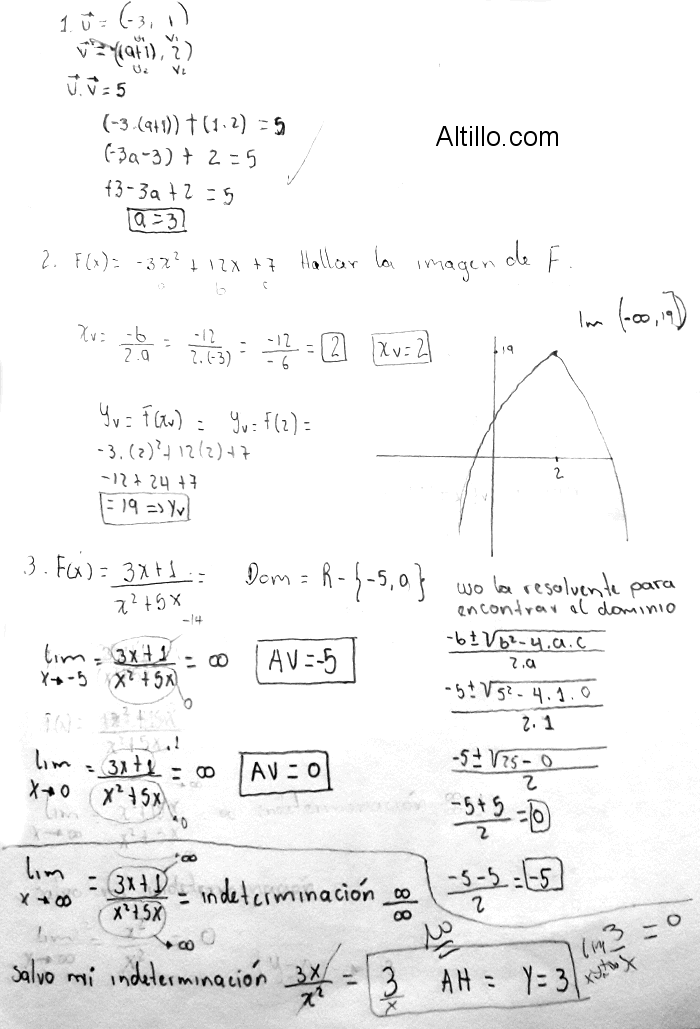 1. u⃗ = (-3, 1)
u₁ v₁
v⃗ = ((a+1), 2)
u₂ v₂
u⃗.v⃗ = 5
(-3.(a+1)) + (1.2) = 5
Altillo.com
(-3a-3) + 2 = 5
+3-3a+2 = 5
a=3
2. F(x) = -3x² + 12x + 7 Hallar la imagen de F.
a b c
Im (-∞, 19]
xv = -b/2.a = -12/2.(-3) = -12/-6 = 2 xv = 2
19
yv = F(xv) = yv = F(2) =
-3.(2)²+12(2)+7
-12+24+7
2
= 19 => yv
3. F(x) = 3x+1/x²+5x = Dom = R-{-5,0}
uso la resolvente para
encontrar el dominio
-14
lim x→-5 = 3x+1/x²+5x = ∞ AV=-5
0
-b±√b²-4.a.c/2.a
-5±√5²-4.1.0/2.1
1
lim x→0 = 3x+1/x²+5x = ∞ AV=0
0
-5±√25-0/2
-5+5/2 = 0
∞
lim x→∞ = 3x+1/x²+5x = indeterminación ∞/∞
∞
-5-5/2 = -5
NO
Salvo mi indeterminación 3x/x² = 3/x AH = Y=3
lim x→±∞ 3/x = 0